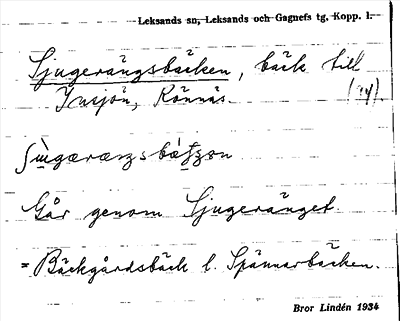 Leksands sn, Leksands och Gagnefs tg. Kopp. l.
Sjugerängsbäcken, bäck till
Insjön, Rönnäs. (ny).
Går genom Sjugeränget
= Bäckgårdsbäck l. Spännarbäcken.
Bror Lindén 1934